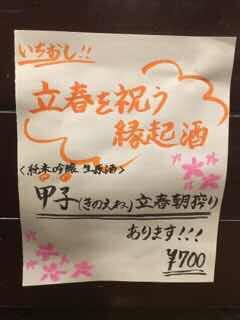 いちおし!!
立春を祝う
縁起酒
<純米吟醸 生原酒>
甲子(きのえね)立春朝搾り
あります!!!
¥700